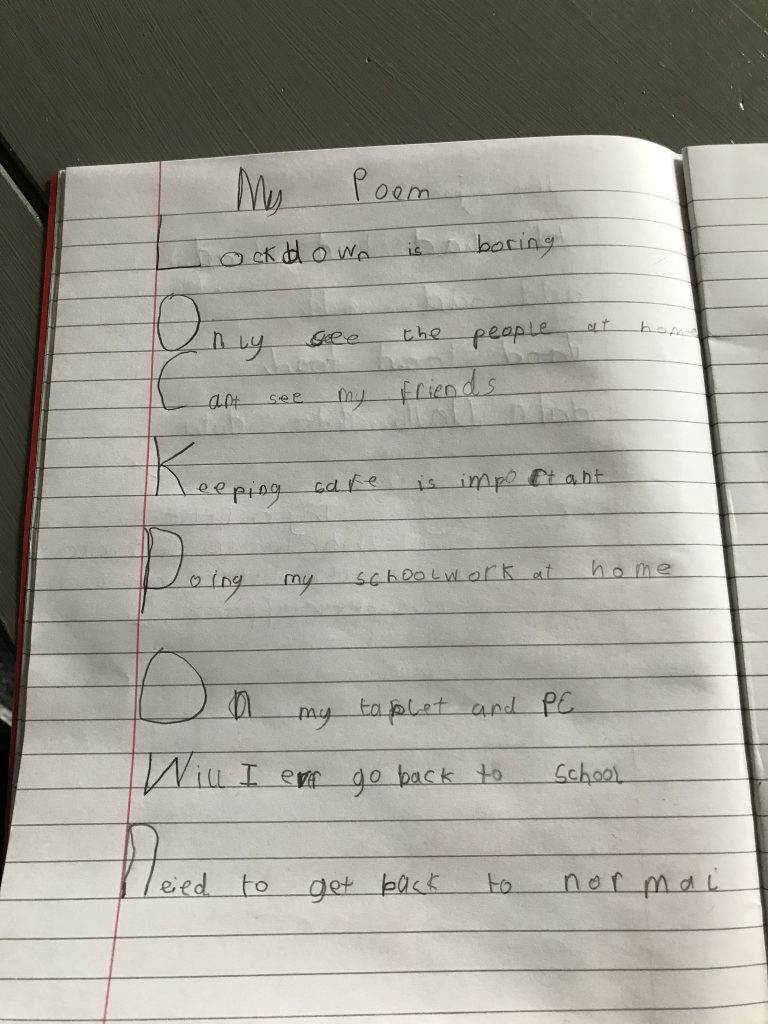 My Poem
Lockdown is boring
Only see the people at home
Cant see my friends
Keeping safe is important
Doing my schoolwork at home
On my tablet and PC
Will I ever go back to school
Neied to get back to normal